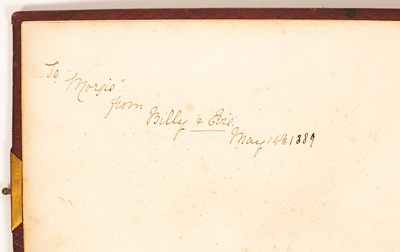 To "Morsie"
from
Billy & Evie.
May 14th 1889